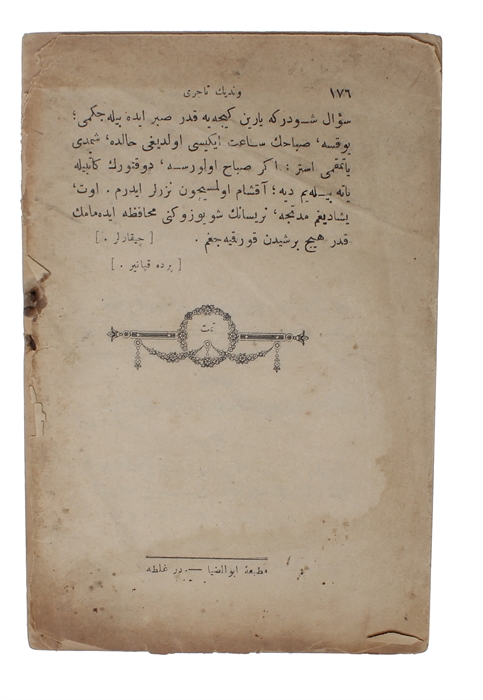 ١٧٦ ونديك تاجرى
سؤال شودركه يارين كيجه‌يه قدر صبر ايده بيله‌جكمى؛
يوقسه، صباحك ساعت ايكيسى اولديغى حالده، شمدى
ياتمقمى استر: اكر صباح اولورسه، دوقتورك كاتبيله
ياته بيله‌يم ديه؛ آقشام اولمسيچون نزرلر ايدرم. اوت،
يشاديغم مدتجه، نريسانك شو يوزوكنى محافظه ايده‌مامك
قدر هيچ برشيدن قورقميه‌جغم. [ چيقارلر. ]
[ پرده قپانير. ]
تمت
مطبعهٔ ابوالضيا — در غلطه